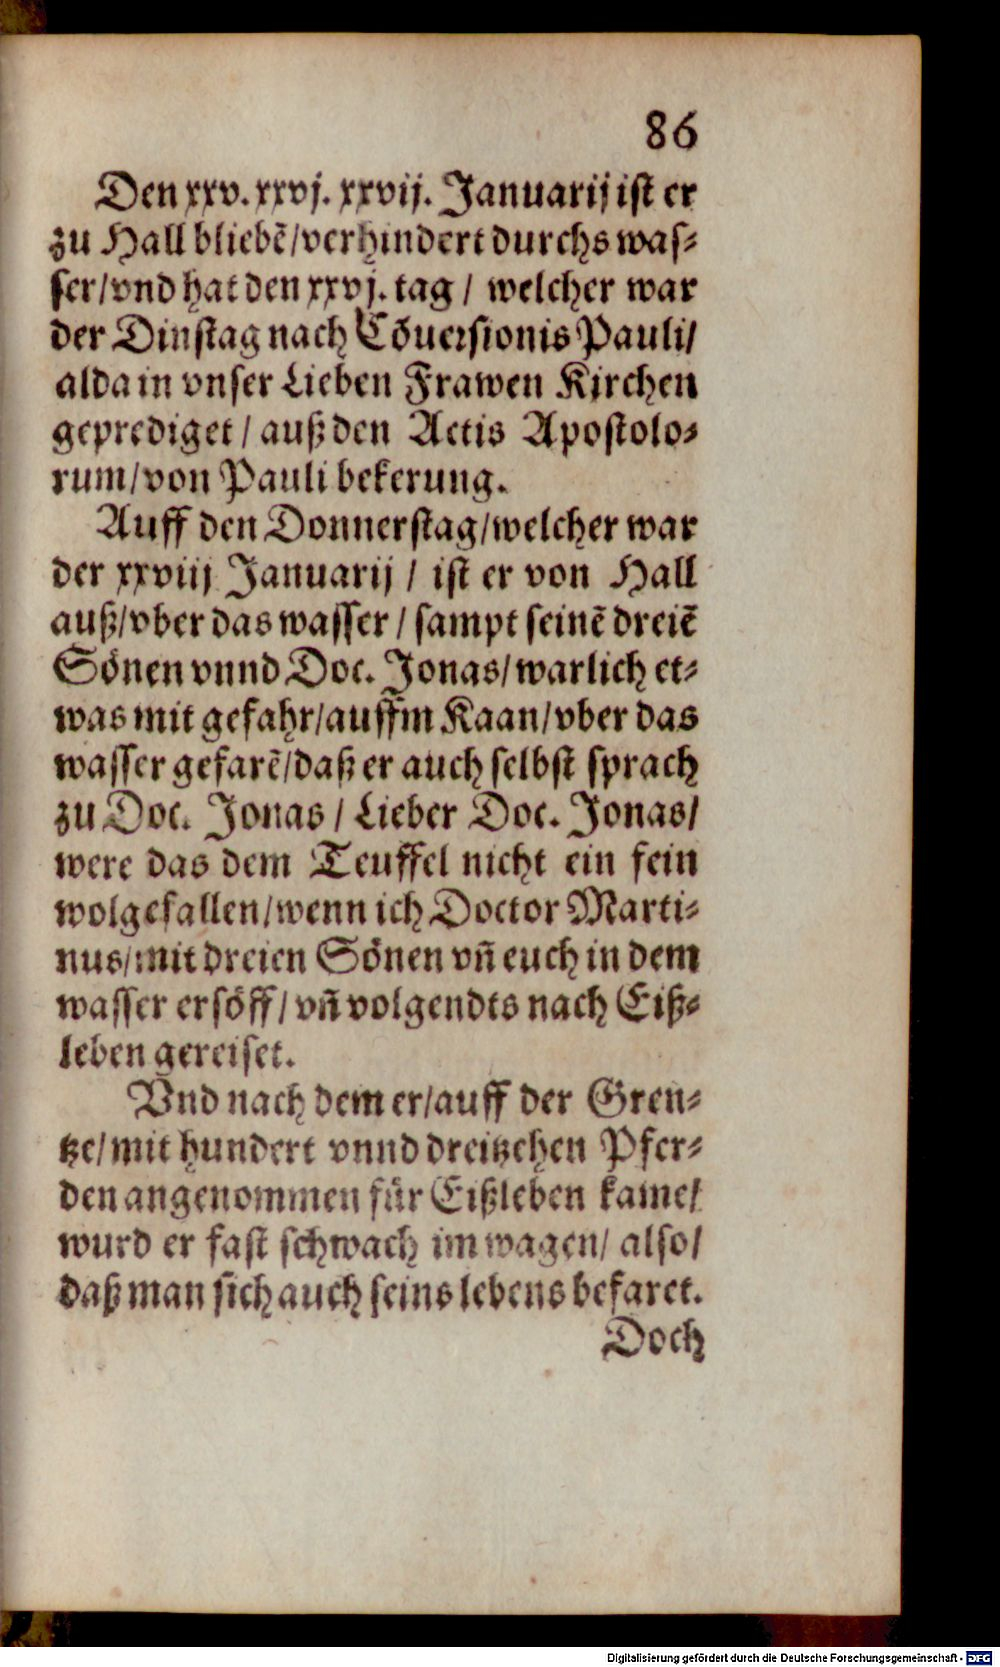 86
Den xxv. xxvj. xxvij. Januarij ist er
zu Hall bliebē/verhindert durchs was⸗
ser/vnd hat den xxvj. tag / welcher war
der Dinstag nach Cōuersionis Pauli/
alda in vnser Lieben Frawen Kirchen
geprediget / auß den Actis Apostolo⸗
rum/von Pauli bekerung.
Auff den Donnerstag/welcher war
der xxviij Januarij / ist er von Hall
auß/vber das wasser / sampt seinē dreiē
Sönen vnnd Doc. Jonas/warlich et⸗
was mit gefahr/auffm Kaan/vber das
wasser gefarē/daß er auch selbst sprach
zu Doc. Jonas / Lieber Doc. Jonas/
were das dem Teuffel nicht ein fein
wolgefallen/wenn ich Doctor Marti⸗
nus/mit dreien Sönen vn̄ euch in dem
wasser ersöff/ vn̄ volgendts nach Eiß⸗
leben gereiset.
Vnd nach dem er/auff der Gren⸗
tze/mit hundert vnnd dreitzehen Pfer⸗
den angenommen für Eißleben kame/
wurd er fast schwach im wagen/ also/
daß man sich auch seins lebens befaret.
Doch
Digitalisierung gefördert durch die Deutsche Forschungsgemeinschaft - DFG